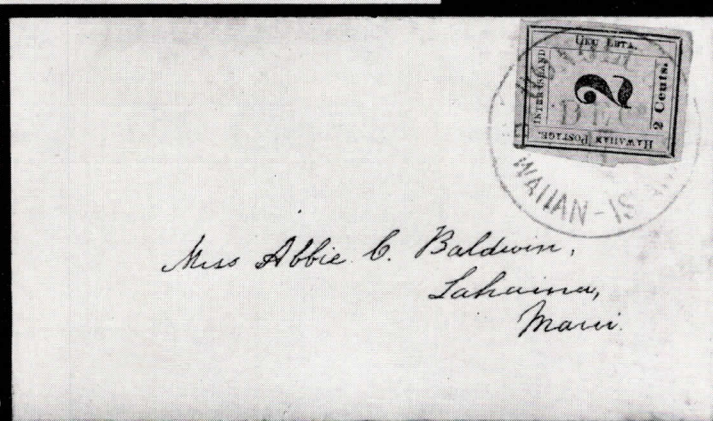 UKU LETA.
INTER ISLAND
2
2 Cents.
HAWAIIAN POSTAGE.
HONOLU
DEC
WAIIAN-ISLA
Miss Abbie C. Baldwin,
Lahaina,
Maui.